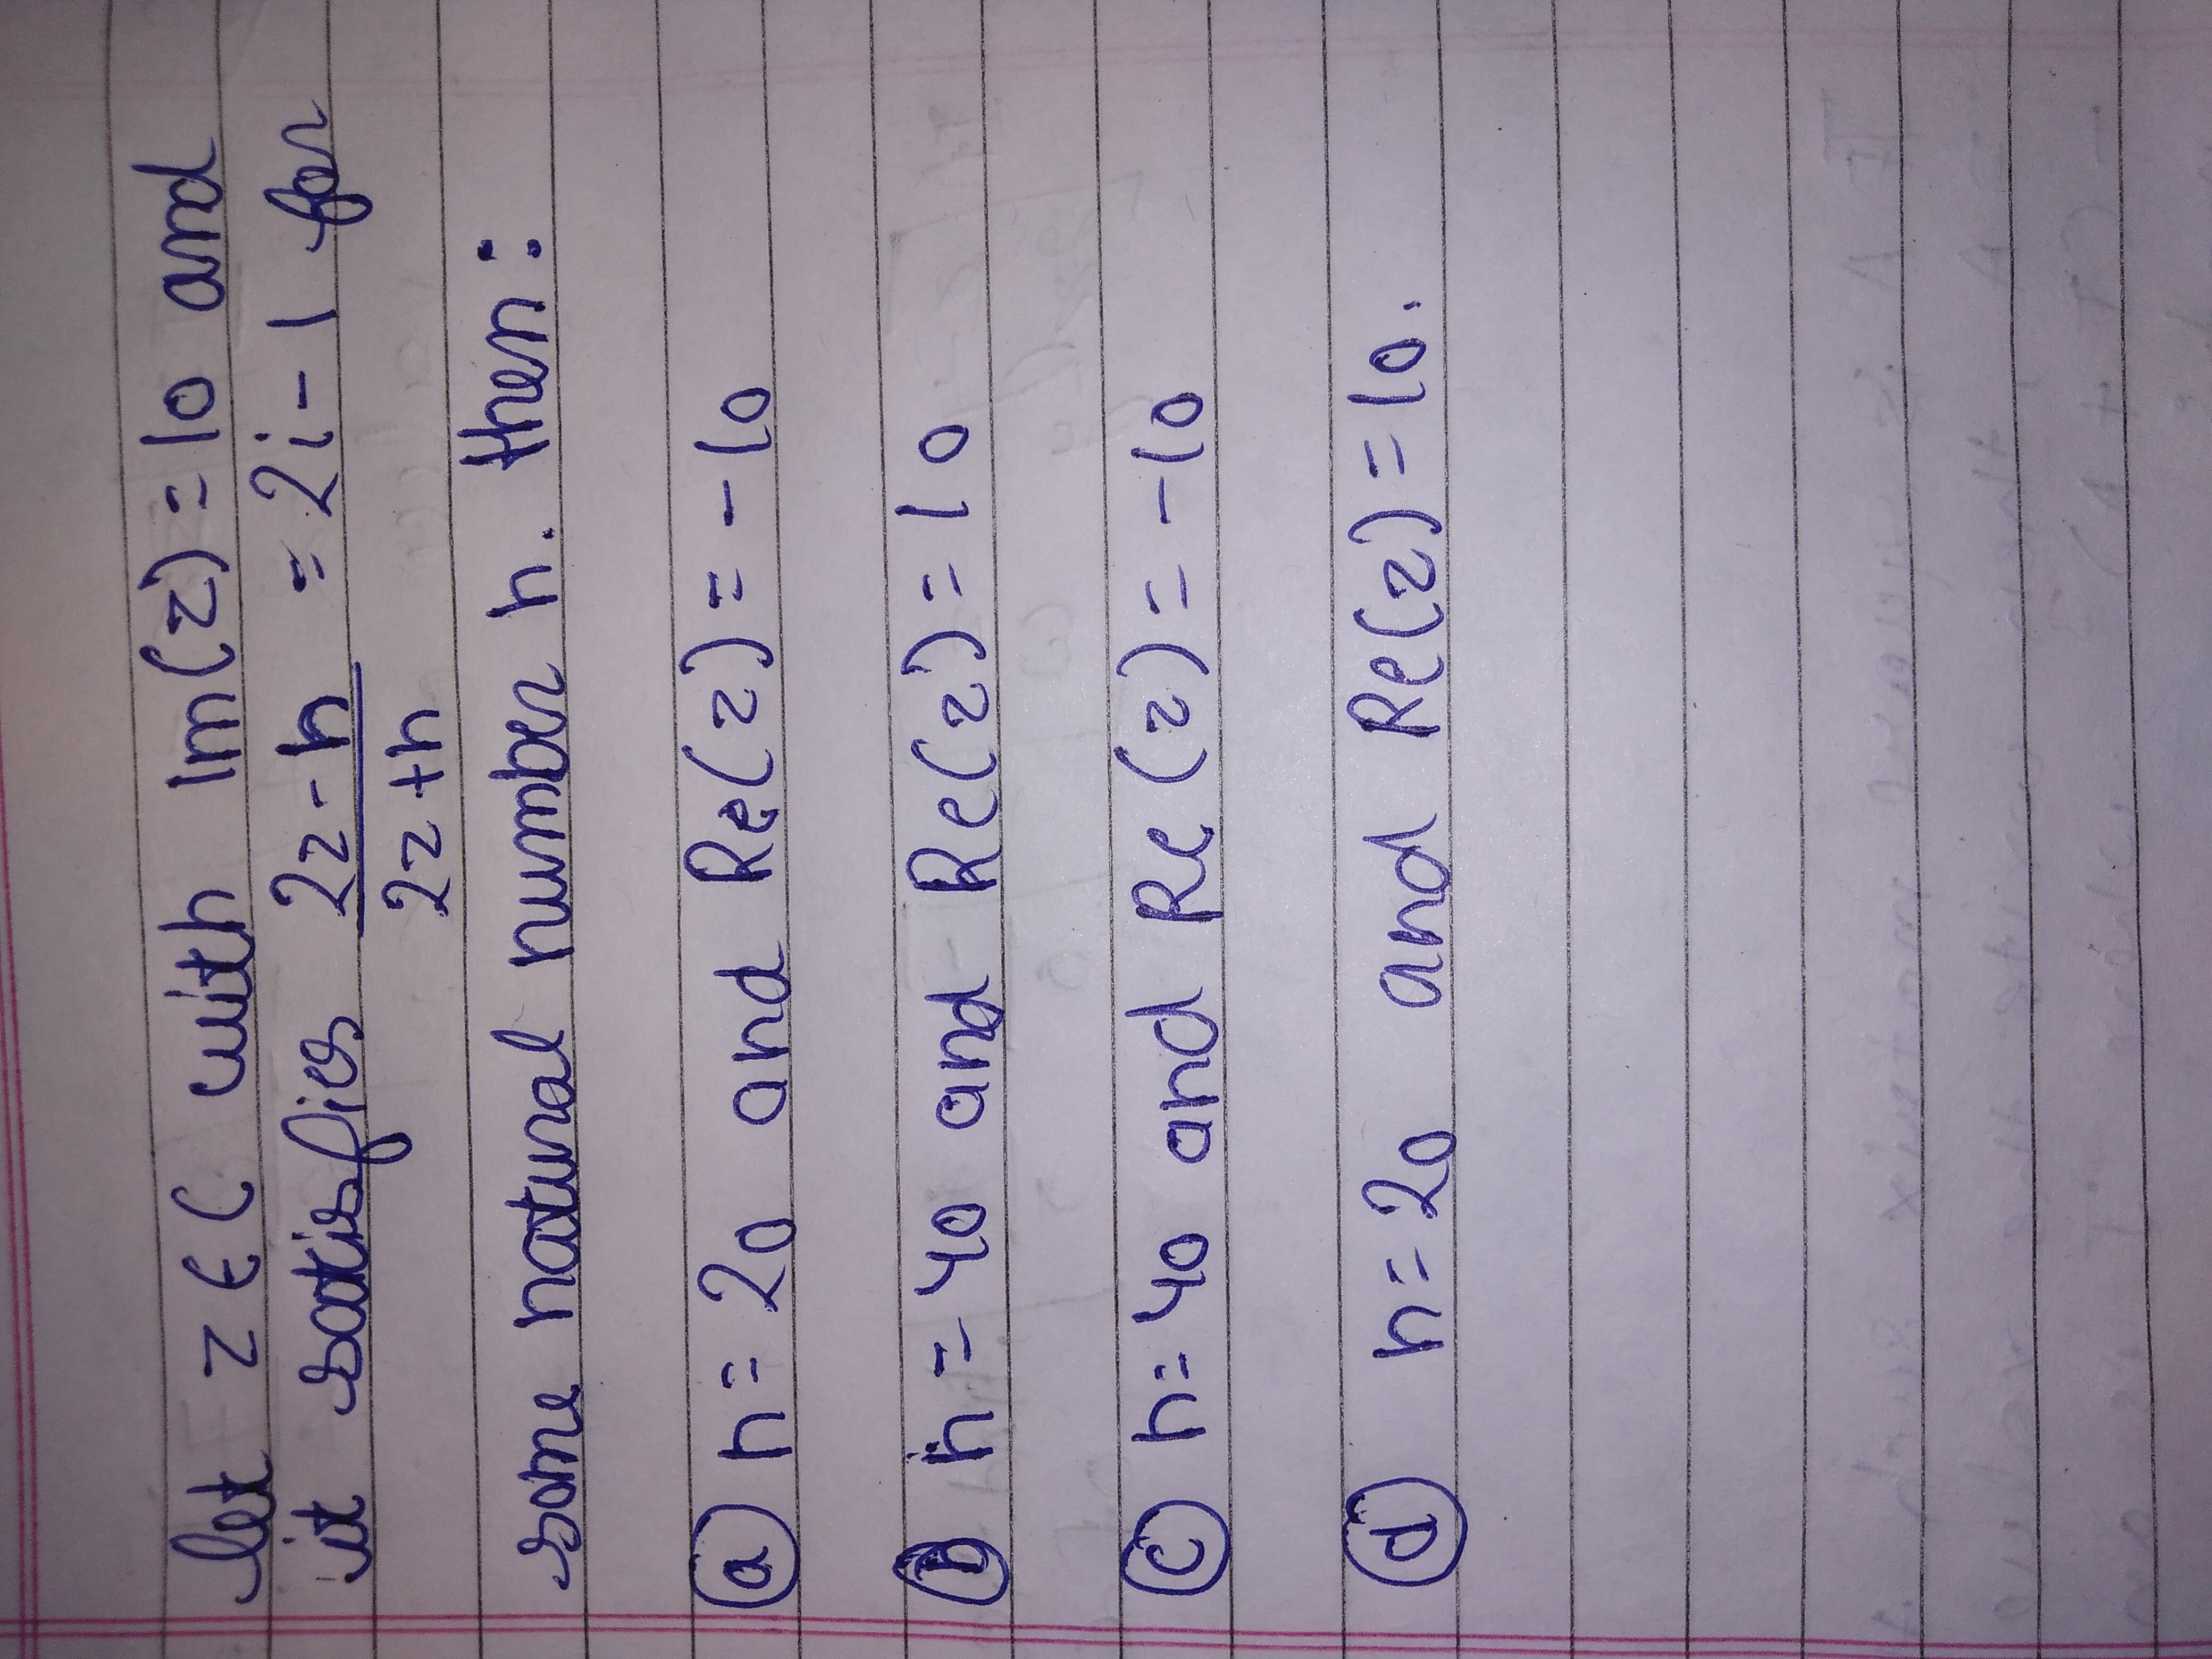 let z ∈ C with Im(z) = 10 and
it satisfies 2z - n = 2i - 1 for
2z + n
some natural number n. then:
(a) n = 20 and Re(z) = -10
(b) n = 40 and Re(z) = 10
(c) n = 40 and Re(z) = -10
(d) n = 20 and Re(z) = 10.